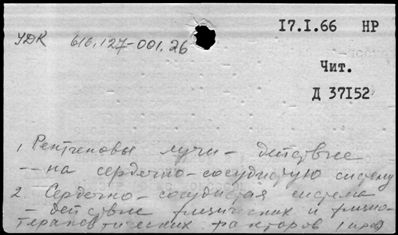 17.I.66 НР
УДК 616.127-001.26
Чит.
Д 37152
1. Рентгеновы лучи - действие
-- на сердечно-сосудистую систему
2. Сердечно-сосудистая система
- действие физических и физио-
терапевтических факторов